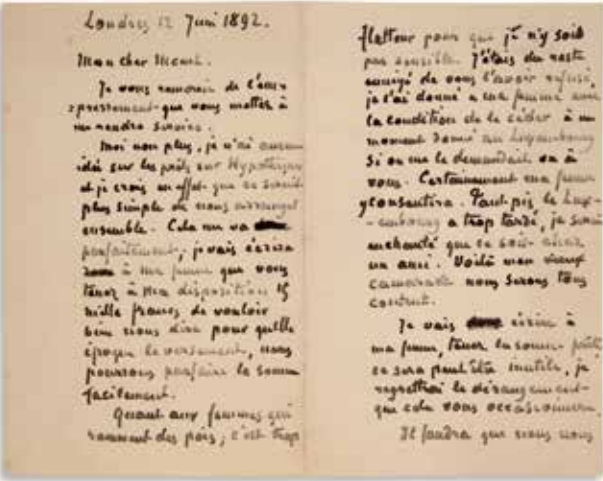 Londres 12 Juin 1892.
Mon cher Monet.
Je vous remercie de l'em-
pressement que vous mettez à
me rendre service.
Moi non plus, je n'ai aucune
idée sur les prêts sur Hypothèques
et je crois en effet que ce serait
plus simple de nous arranger
ensemble. Cela me va
parfaitement, je vais écrire
à ma femme que vous
tenez à ma disposition 15
mille francs de vouloir
bien nous dire pour quelle
époque le versement, nous
pourrons parfaire la somme
facilement.
Quant aux femmes qui
rament des pois, c'est trop
flatteur pour que je n'y sois
pas sensible. J'étais du reste
ennuyé de vous l'avoir refusé,
je l'ai donné à ma femme avec
la condition de le céder à un
moment donné au Luxembourg
si on me le demandait ou à
vous. Certainement ma femme
y consentira. Tant pis le Lux-
embourg a trop tardé, je serai
enchanté que ce soit chez
un ami. Voilà mon vieux
camarade nous serons tous
content.
Je vais écrire à
ma femme, tenez la somme prête
ce sera peut être inutile, je
regretterai le dérangement
que cela vous occasionnera.
Il faudra que nous nous